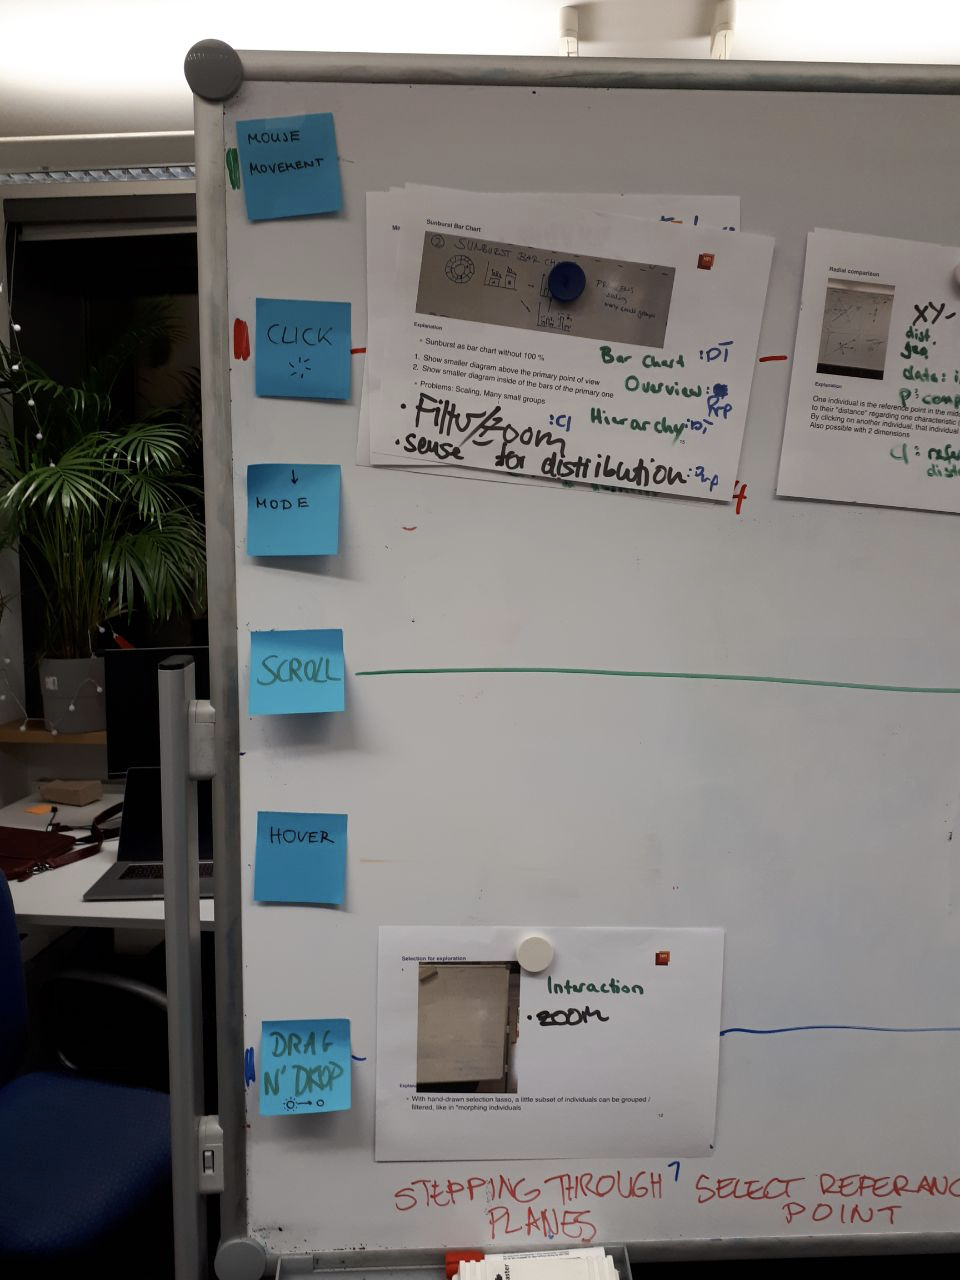 MOUSE
MOVEMENT
CLICK
MODE
SCROLL
HOVER
DRAG
N' DROP
Sunburst Bar Chart
② SUNBURST BAR CH
Explanation
• Sunburst as bar chart without 100 %
1. Show smaller diagram above the primary point of view
2. Show smaller diagram inside of the bars of the primary one
• Problems: Scaling, Many small groups
Bar Chart :DT
Overview:
Hierarchy:DT
• Filter/zoom :CI
• sense for distribution:
4
Radial comparison
XY-
dist.
geg
data: i
P: comp
Explanation
One individual is the reference point in the mid
to their "distance" regarding one characteristic (
By clicking on another individual, that individual
Also possible with 2 dimensions
Selection for exploration
Interaction
• zoom
• With hand-drawn selection lasso, a little subset of individuals can be grouped /
filtered, like in "morphing individuals
12
STEPPING THROUGH
PLANES
7
SELECT REFERANC
POINT